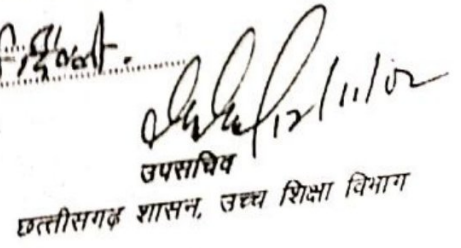 12/11/02
उपसचिव
छत्तीसगढ़ शासन, उच्च शिक्षा विभाग